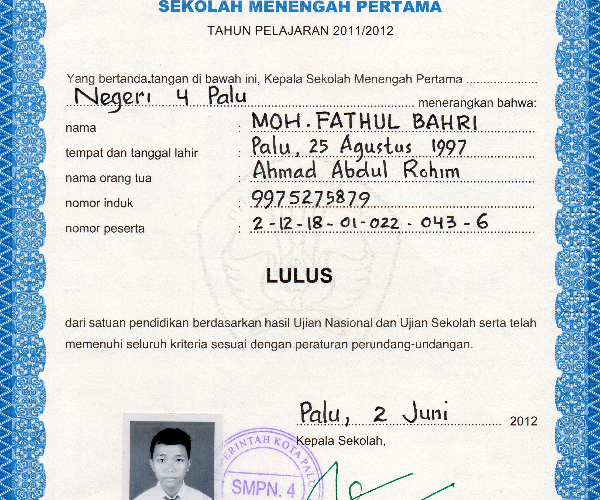 SEKOLAH MENENGAH PERTAMA
TAHUN PELAJARAN 2011/2012
Yang bertanda tangan di bawah ini, Kepala Sekolah Menengah Pertama
Negeri 4 Palu menerangkan bahwa:
nama : MOH. FATHUL BAHRI
tempat dan tanggal lahir : Palu, 25 Agustus 1997
nama orang tua : Ahmad Abdul Rohim
nomor induk : 9975275879
nomor peserta : 2-12-18-01-022-043-6
LULUS
dari satuan pendidikan berdasarkan hasil Ujian Nasional dan Ujian Sekolah serta telah
memenuhi seluruh kriteria sesuai dengan peraturan perundang-undangan.
Palu, 2 Juni 2012
Kepala Sekolah,
KOTA PALU
SMPN. 4